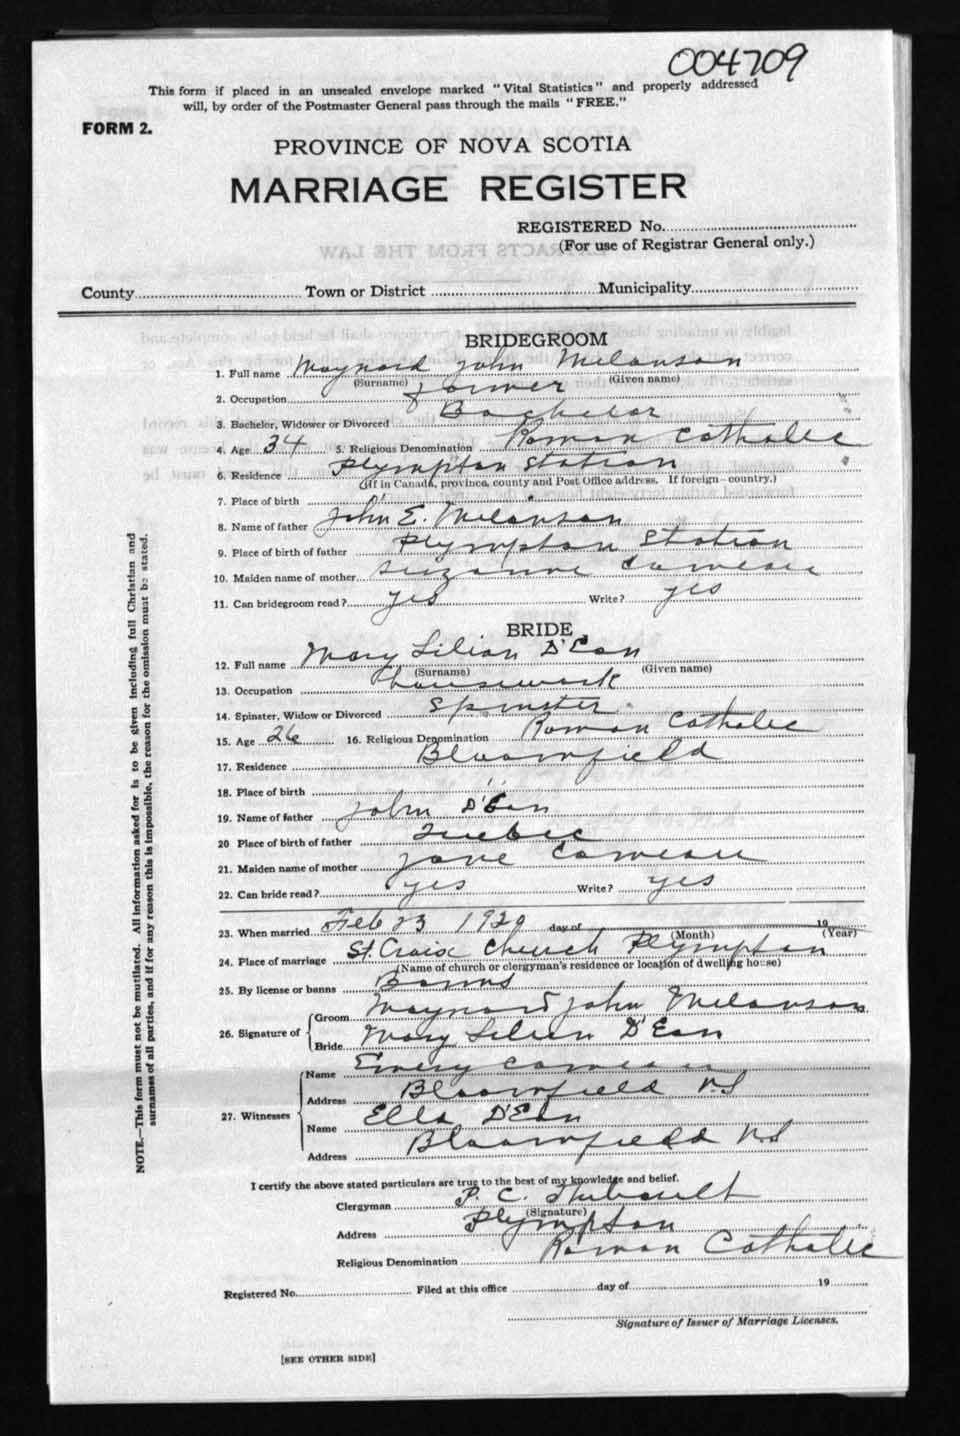 004709
This form if placed in an unsealed envelope marked "Vital Statistics" and properly addressed
will, by order of the Postmaster General pass through the mails "FREE."
FORM 2.
PROVINCE OF NOVA SCOTIA
MARRIAGE REGISTER
REGISTERED No.
(For use of Registrar General only.)
County Town or District Municipality
BRIDEGROOM
1. Full name Maynard John Melanson
(Surname) (Given name)
2. Occupation farmer
3. Bachelor, Widower or Divorced Bachelor
4. Age 34 5. Religious Denomination Roman Catholic
6. Residence Plympton Station
(If in Canada, province, county and Post Office address. If foreign—country.)
7. Place of birth "
8. Name of father John E. Melanson
9. Place of birth of father Plympton Station
10. Maiden name of mother Suzanne Comeau
11. Can bridegroom read? yes Write? yes
BRIDE
12. Full name Mary Lilian D'Eon
(Surname) (Given name)
13. Occupation housework
14. Spinster, Widow or Divorced Spinster
15. Age 26 16. Religious Denomination Roman Catholic
17. Residence Bloomfield
18. Place of birth "
19. Name of father John D'Eon
20 Place of birth of father Quebec
21. Maiden name of mother Jane Comeau
22. Can bride read? yes Write? yes
23. When married Feb 23 1920 day of 19
(Month) (Year)
24. Place of marriage St. Croix Church Plympton
(Name of church or clergyman's residence or location of dwelling house)
25. By license or banns Banns
26. Signature of Groom Maynard John Melanson
Bride Mary Lilian D'Eon
27. Witnesses
Name Emery Comeau
Address Bloomfield N.S
Name Ella D'Eon
Address Bloomfield N.S
I certify the above stated particulars are true to the best of my knowledge and belief.
Clergyman P. C. Thibault
(Signature)
Address Plympton
Religious Denomination Roman Catholic
Registered No. Filed at this office day of 19
Signature of Issuer of Marriage Licenses.
[SEE OTHER SIDE]
NOTE.—This form must not be mutilated. All information asked for is to be given including full Christian and
surnames of all parties, and if for any reason this is impossible, the reason for the omission must be stated.